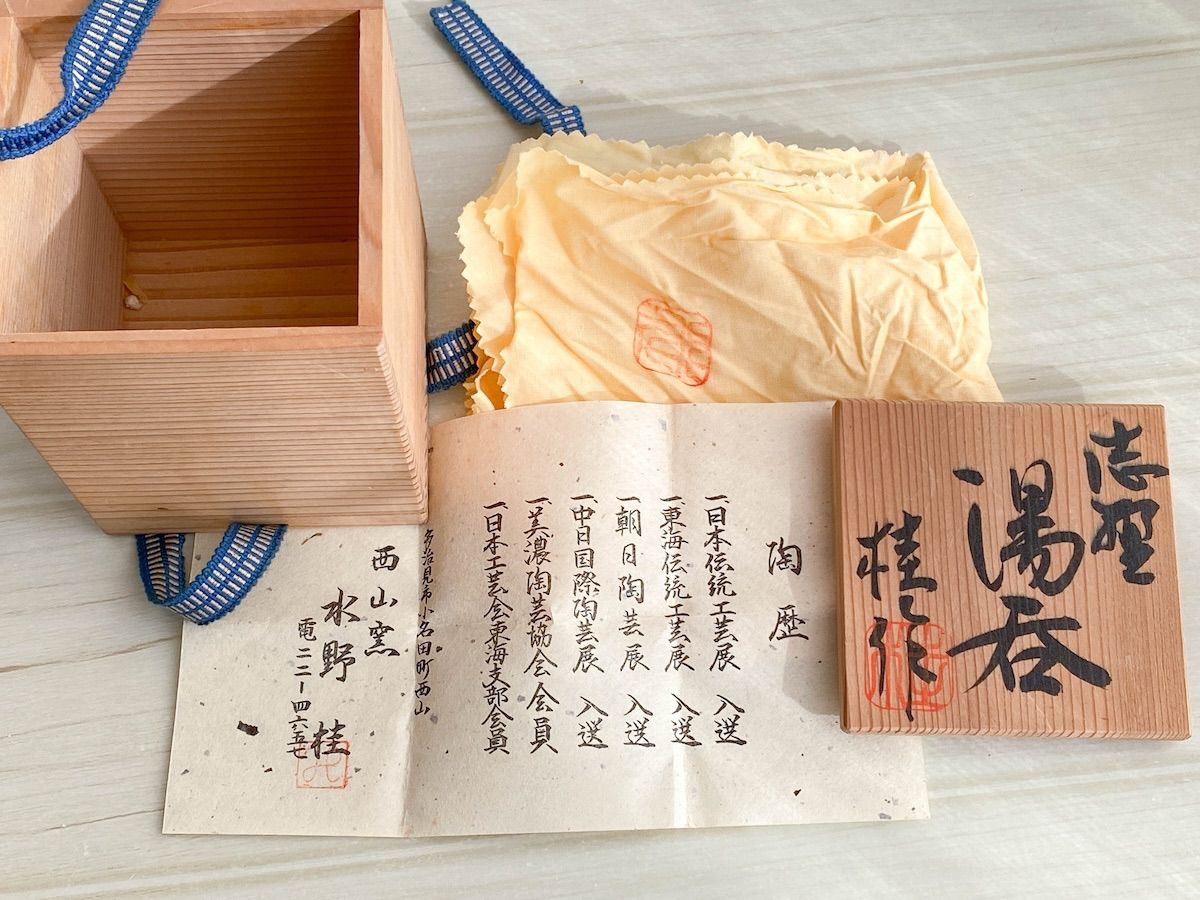 志野
湯呑
桂作
陶歴
一日本伝統工芸展 入選
一東海伝統工芸展 入選
一朝日陶芸展 入選
一中日国際陶芸展 入選
一美濃陶芸協会会員
一日本工芸会東海支部会員
多治見市小名田町西山
西山窯
水野 桂
電二二ー四六五七